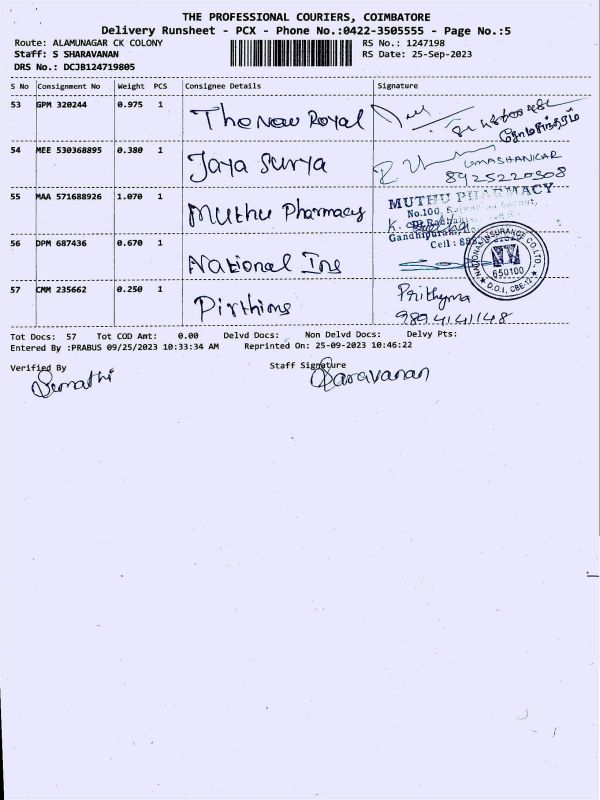 THE PROFESSIONAL COURIERS, COIMBATORE
Delivery Runsheet - PCX - Phone No.:0422-3505555 - Page No.:5
Route: ALAMUNAGAR CK COLONY RS No.: 1247198
Staff: S SHARAVANAN RS Date: 25-Sep-2023
DRS No.: DCJB124719805
S No Consignment No Weight PCS Consignee Details Signature
53 GPM 320244 0.975 1 The New Royal
54 MEE 530368895 0.380 1 Jaya Surya UMASHANKAR
8925220508
55 MAA 571688926 1.070 1 Muthu Pharmacy MUTHU PHARMACY
No.100,
Gandhipuram,
Cell :
56 DPM 687436 0.670 1 National Ins NATIONAL INSURANCE CO.LTD.
650100
D.O.I, CBE-12
57 CMM 235662 0.250 1 Pirthims Prithyma
9894141148
Tot Docs: 57 Tot COD Amt: 0.00 Delvd Docs: Non Delvd Docs: Delvy Pts:
Entered By :PRABUS 09/25/2023 10:33:34 AM Reprinted On: 25-09-2023 10:46:22
Verified By Staff Signature
Sumathi Saravanan